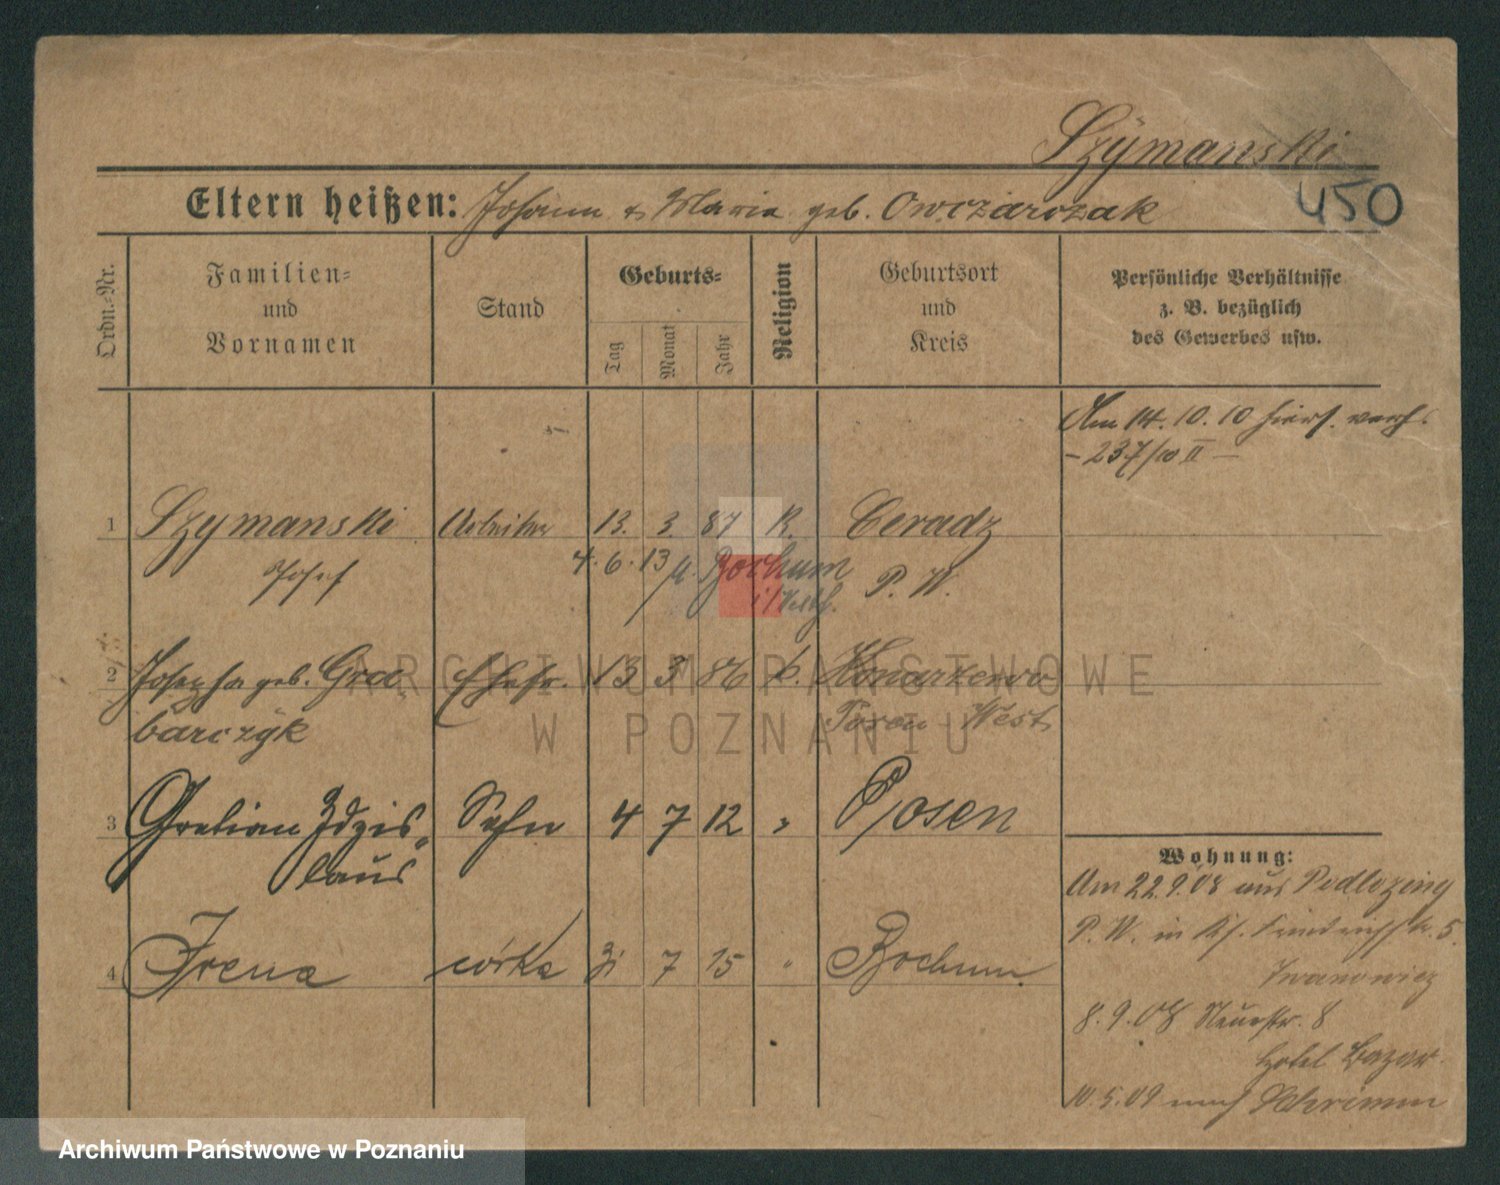 Szÿmanski
450
Eltern heißen: Johann & Maria geb. Owczarczak
Ordn.-Nr.
Familien-
und
Vornamen
Stand
Geburts-
Tag
Monat
Jahr
Religion
Geburtsort
und
Kreis
Persönliche Verhältnisse
z. B. bezüglich
des Gewerbes usw.
Am 14.10.10 hiers. verh.
- 237/10 II -
1 Szymanski Arbeiter 13. 3. 87 K. Ceradz
Josef 4.6.13 Bochum P. W.
i/Westf.
2 Josepha geb. Gra Ehefr. 13 3 86 k. Konarzewo
barczÿk Posen West
3 Gratian Zdzis- Sohn 4 7 12 " Posen
laus
4 Irena córka 31 7 15 " Bochum
Wohnung:
Am 22.9.08 aus
P. W. in 5.
Iwanowicz
8.9.08 Neuestr. 8
Hotel Bazar
10.5.09 nach Schrimm
ARCHIWUM PAŃSTWOWE
W POZNANIU
Archiwum Państwowe w Poznaniu